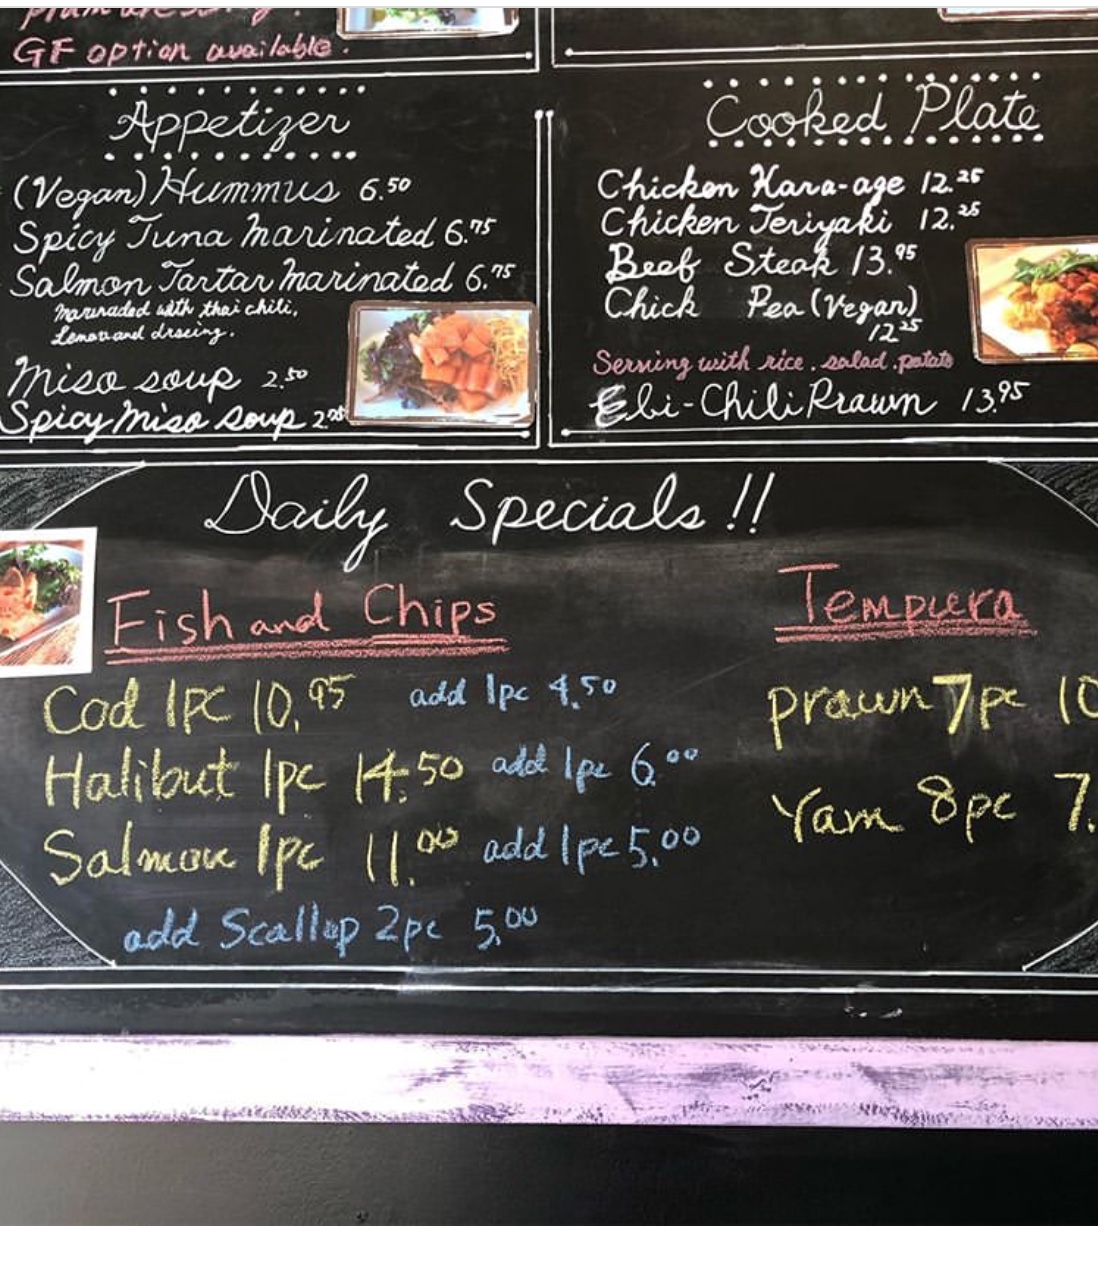 GF option available.
Appetizer
(Vegan) Hummus 6.50
Spicy Tuna Marinated 6.75
Salmon Tartar Marinated 6.75
Marinaded with thai chili,
Lemon and drseing.
Miso soup 2.50
Spicy Miso soup
Cooked Plate
Chicken Kara-age 12.25
Chicken Teriyaki 12.25
Beef Steak 13.95
Chick Pea (Vegan)
12.25
Serving with rice, salad, potato
Ebi-Chili Prawn 13.95
Daily Specials!!
Fish and Chips
Cod 1pc 10.95 add 1pc 4.50
Halibut 1pc 14.50 add 1pc 6.00
Salmon 1pc 11.00 add 1pc 5.00
add Scallop 2pc 5.00
Tempura
prawn 7pc 10
Yam 8pc 7.